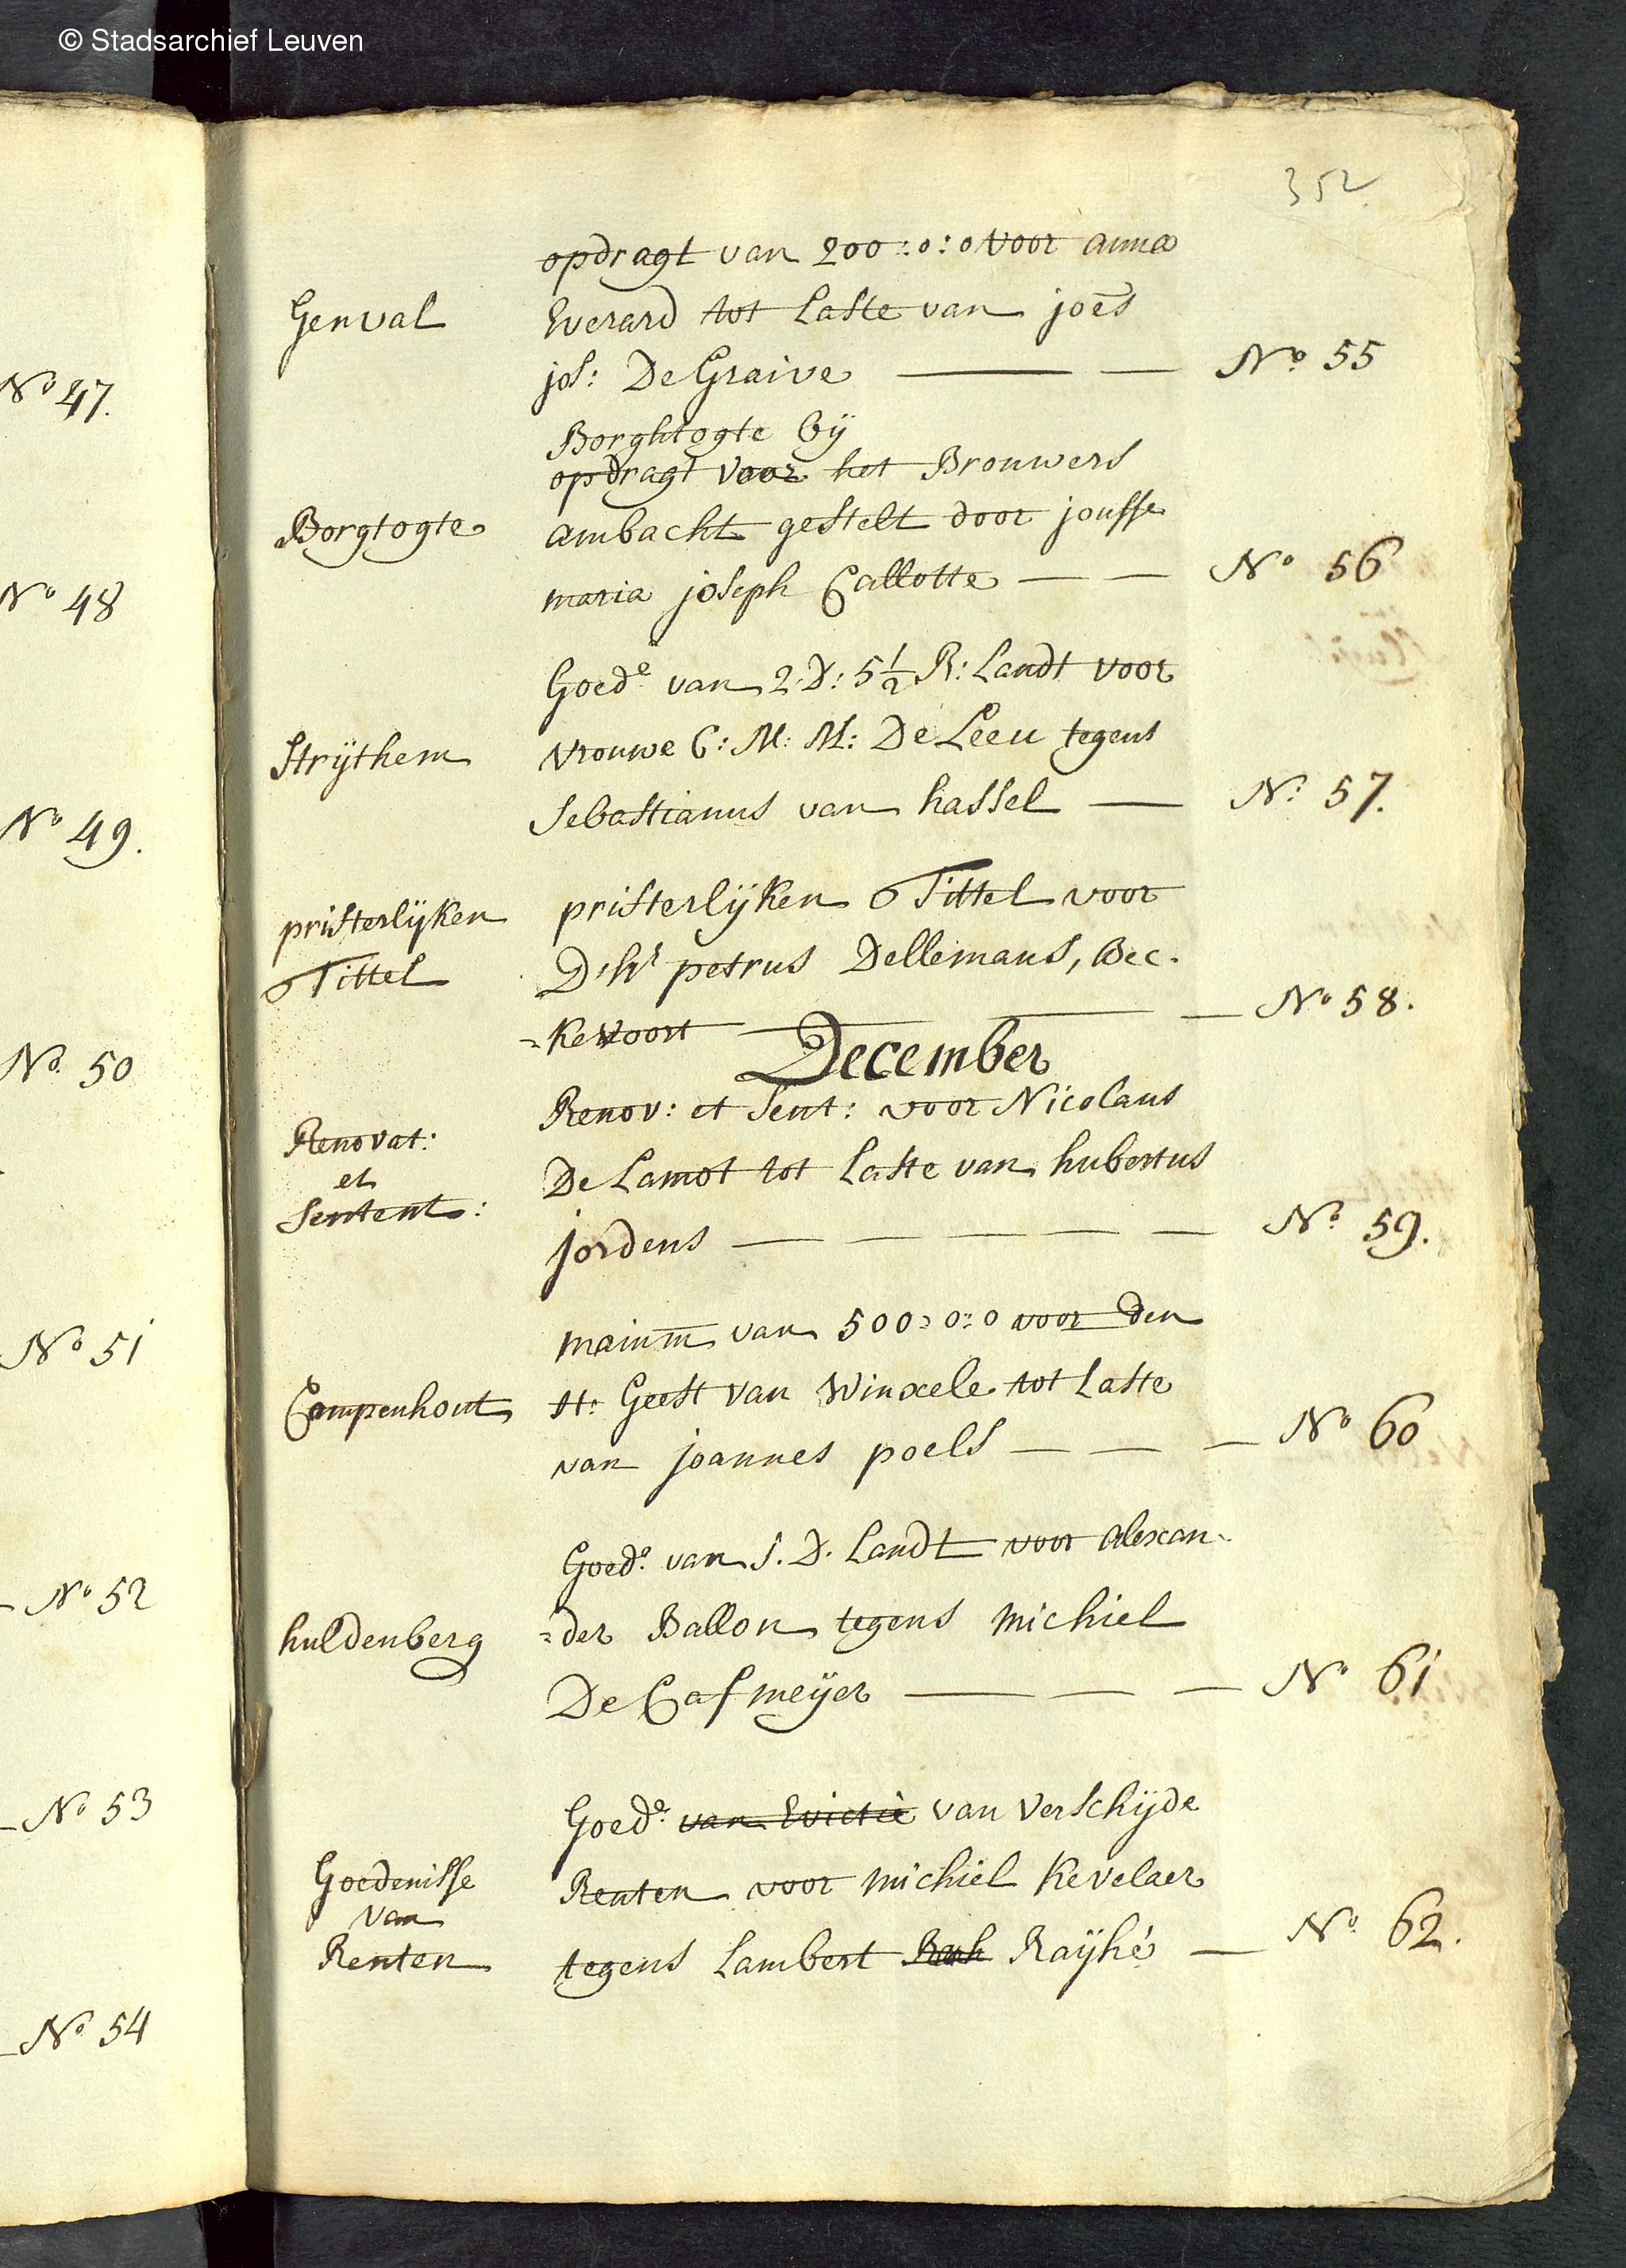 © Stadsarchief Leuven
No 47.
No 48
No 49.
No 50
No 51
No 52
No 53
No 54
352
opdragt van 200:0:0 voor anna
Genval
Everard tot Laste van joēs
jos: De Graive No 55
Borghtogte bÿ
opdragt voor het Brouwers
Borgtogte
ambacht gestelt door jouffe
maria joseph Callotte No 56
Goede van 2:D: 5 1/2 R: Landt voor
Strÿthem
vrouwe C: M: M: De Leeu tegens
Sebastianus van hassel No 57.
pristerlÿken
Tittel
pristerlÿken Tittel voor
D'hr petrus Dellemans, Bec-
=kevoort No 58.
December
Renovat:
et
Sentent:
Renov: et Sent: voor Nicolaus
De Lamot tot Laste van hubertus
jordens No 59.
mainm̄ van 500:0:0 voor Den
Campenhout
H: Geest van Winxele tot Laste
van joannes poels No 60
Goede van 1. D. Landt voor alexan-
huldenberg
=der Ballon tegens Michiel
De Cafmeÿer No 61
Goede van Evictie van verschÿde
Goedenisse
van
Renten
Renten voor Michiel Kevelaer
tegens Lambert Raÿhé No 62.